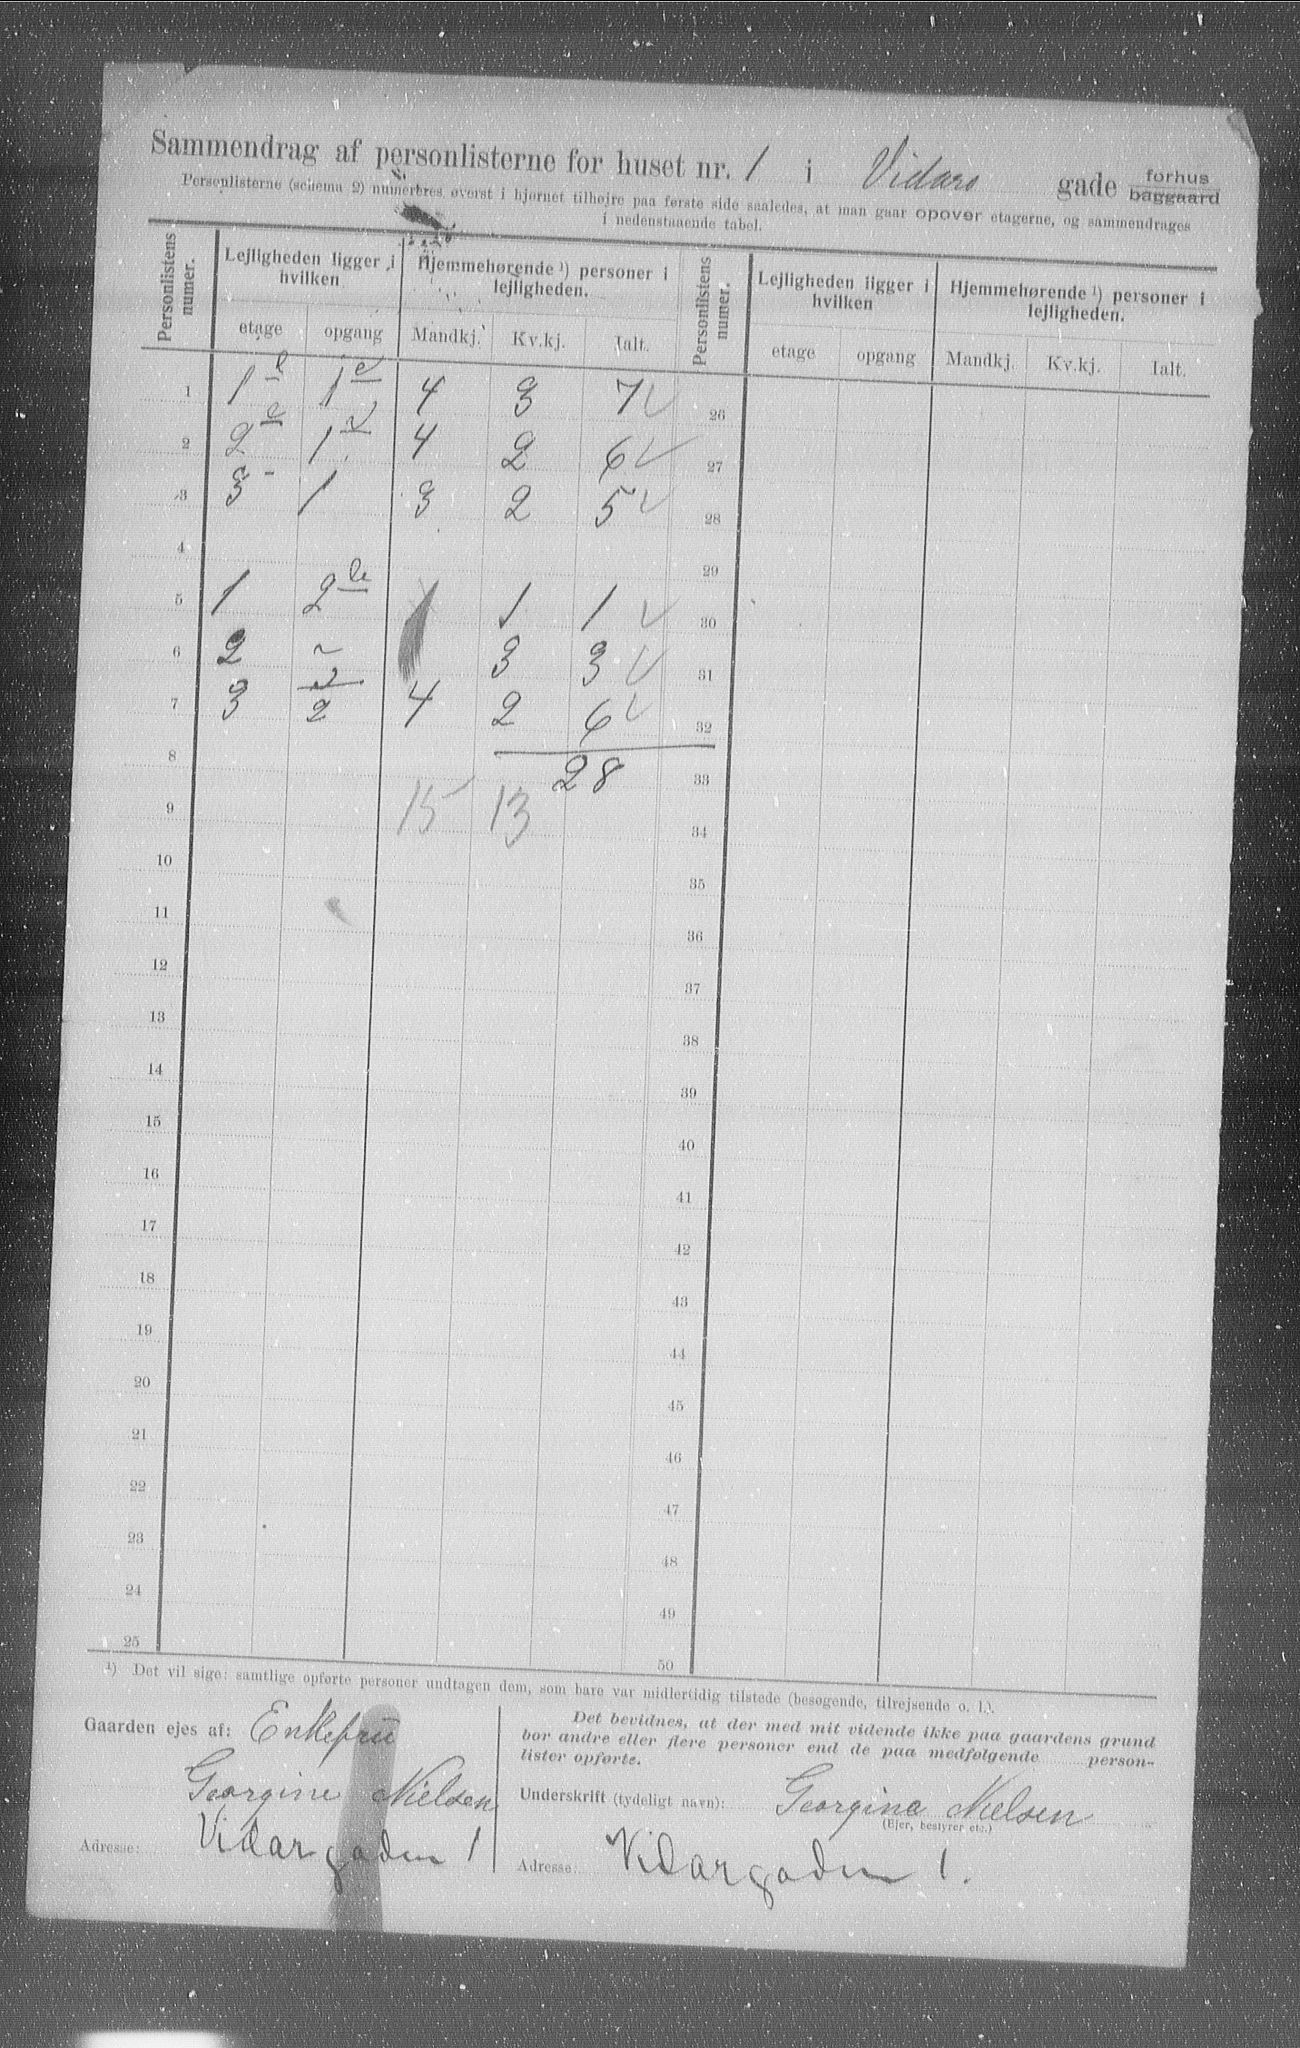 Sammendrag af personlisterne for huset nr. 1 i Vidars gade forhus baggaard
Personlisterne (schema 2) numereres øverst i hjørnet tilhøjre paa første side saaledes, at man gaar opover etagerne, og sammendrages
i nedenstaaende tabel.
Personlistens numer. Lejligheden ligger i hvilken Hjemmehørende ¹) personer i lejligheden. Personlistens numer. Lejligheden ligger i hvilken Hjemmehørende ¹) personer i lejligheden.
etage opgang Mandkj. Kv.kj. Ialt. etage opgang Mandkj. Kv.kj. Ialt.
1 1e 1e 4 3 7 ✓ 26
2 2e 1e 4 2 6 ✓ 27
3 3 - 1 3 2 5 ✓ 28
4 29
5 1 2 1 1 ✓ 30
6 2 ~ 3 3 ✓ 31
7 3 2 4 2 6 ✓ 32
8 28 33
9 15 13 34
10 35
11 36
12 37
13 38
14 39
15 40
16 41
17 42
18 43
19 44
20 45
21 46
22 47
23 48
24 49
25 50
¹) Det vil sige: samtlige opførte personer undtagen dem, som bare var midlertidig tilstede (besøgende, tilrejsende o. l.).
Gaarden ejes af: Enkefru
Georgine Nielsen
Adresse: Vidargaden 1
Det bevidnes, at der med mit vidende ikke paa gaardens grund
bor andre eller flere personer end de paa medfølgende person-
lister opførte.
Underskrift (tydeligt navn): Georgine Nielsen
(Ejer, bestyrer etc.)
Adresse: Vidargaden 1.